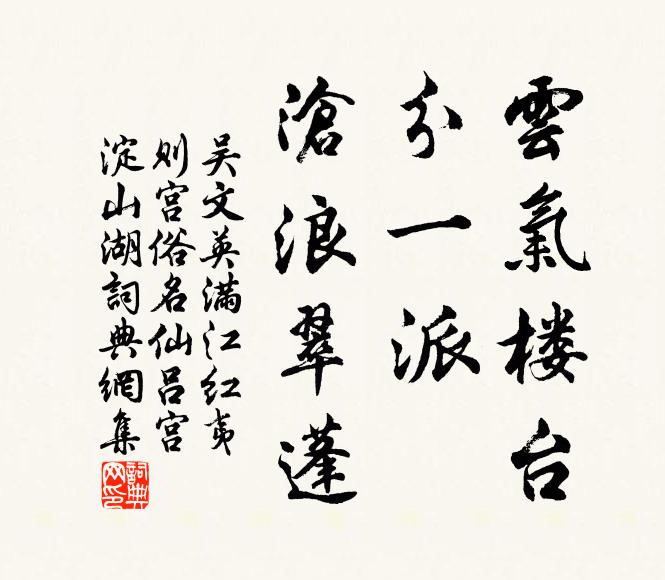 雲氣楼台
分一派
滄浪翠蓬
吴文英满江红夷
则宫俗名仙吕宫
淀山湖詞典網集
詞典网印